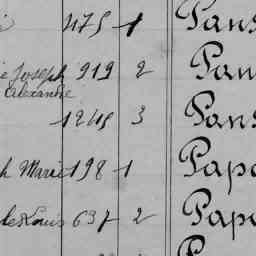 475 1 Pans
Joseph 919 2 Pan
Alexandre
1245 3 Pans
h Marie 198 1 Papo
Louis 637 2 Papo